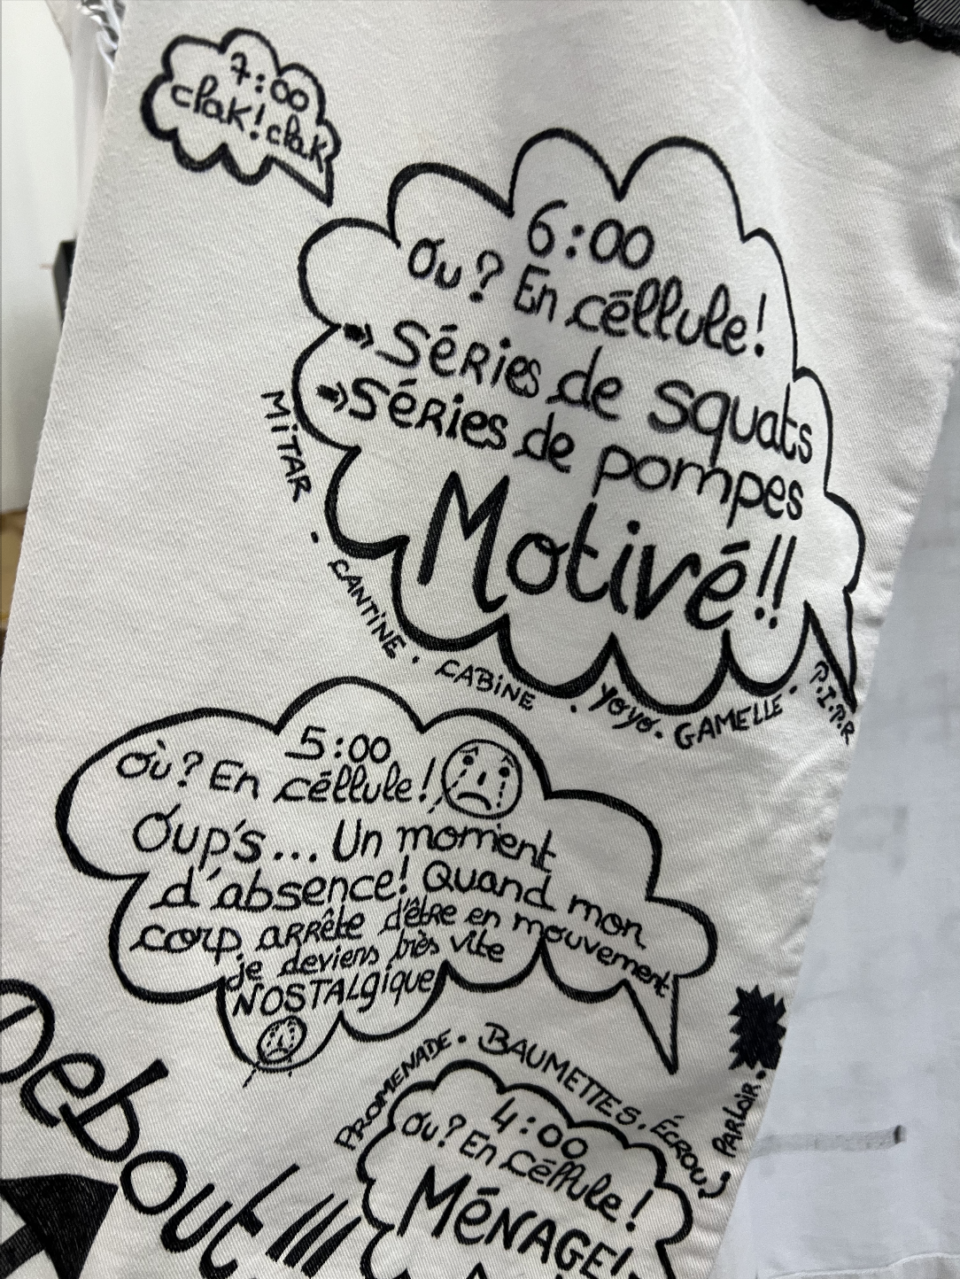 7:00
clak! clak
6:00
Ou? En céllule!
Séries de squats
Séries de pompes
Motivé!!
MiTAR . CANTiNE . CABiNE . YoYo . GAMELLE . P.I.P.R
5:00
où? En céllule!
Oup's... Un moment
d'absence! Quand mon
corp arrête d'être en mouvement
je deviens très vite
NOSTALgique
PROMENADE . BAUMETTES . ÉCROU . PARLoiR .
4:00
Ou? En céllule!
MéNAGE!
Debout!!!